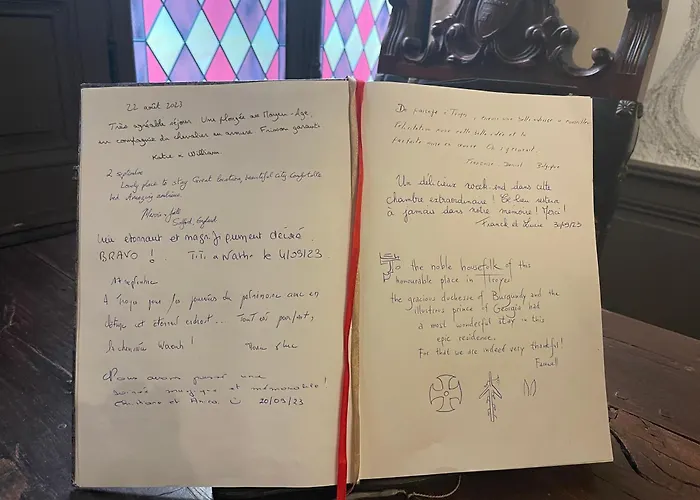 22 août 2023
Très agréable séjour. Une plongée au Moyen-Age,
en compagnie du chevalier en armure. Frisson garanti.
Katie & William.
2 septembre
Lovely place to stay. Great location, beautiful city, comfortable
bed. Amazing ambience.
England
Lieu etonnant et magnifiquement décoré.
BRAVO ! TiTi & Natho le 4/09/23.
17 septembre
A Troyes pour les journées du patrimoine dans cet
et éternel endroit... Tout est parfait,
la cheminée Waouh !
Nous avons passé une
soirée magique et mémorable !
et 20/09/23
De passage à Troyes,
Félicitations pour cette
Un délicieux week-end dans cette
chambre extraordinaire ! Ce lieu restera
à jamais dans notre mémoire ! Merci !
Franck et Lucie
To the noble housefolk of this
honourable place in Troyes
the gracious duchesse of Burgundy and the
illustrious prince of Georgia had
a most wonderful stay in this
epic residence.
For that we are indeed very thankful!
Farewell